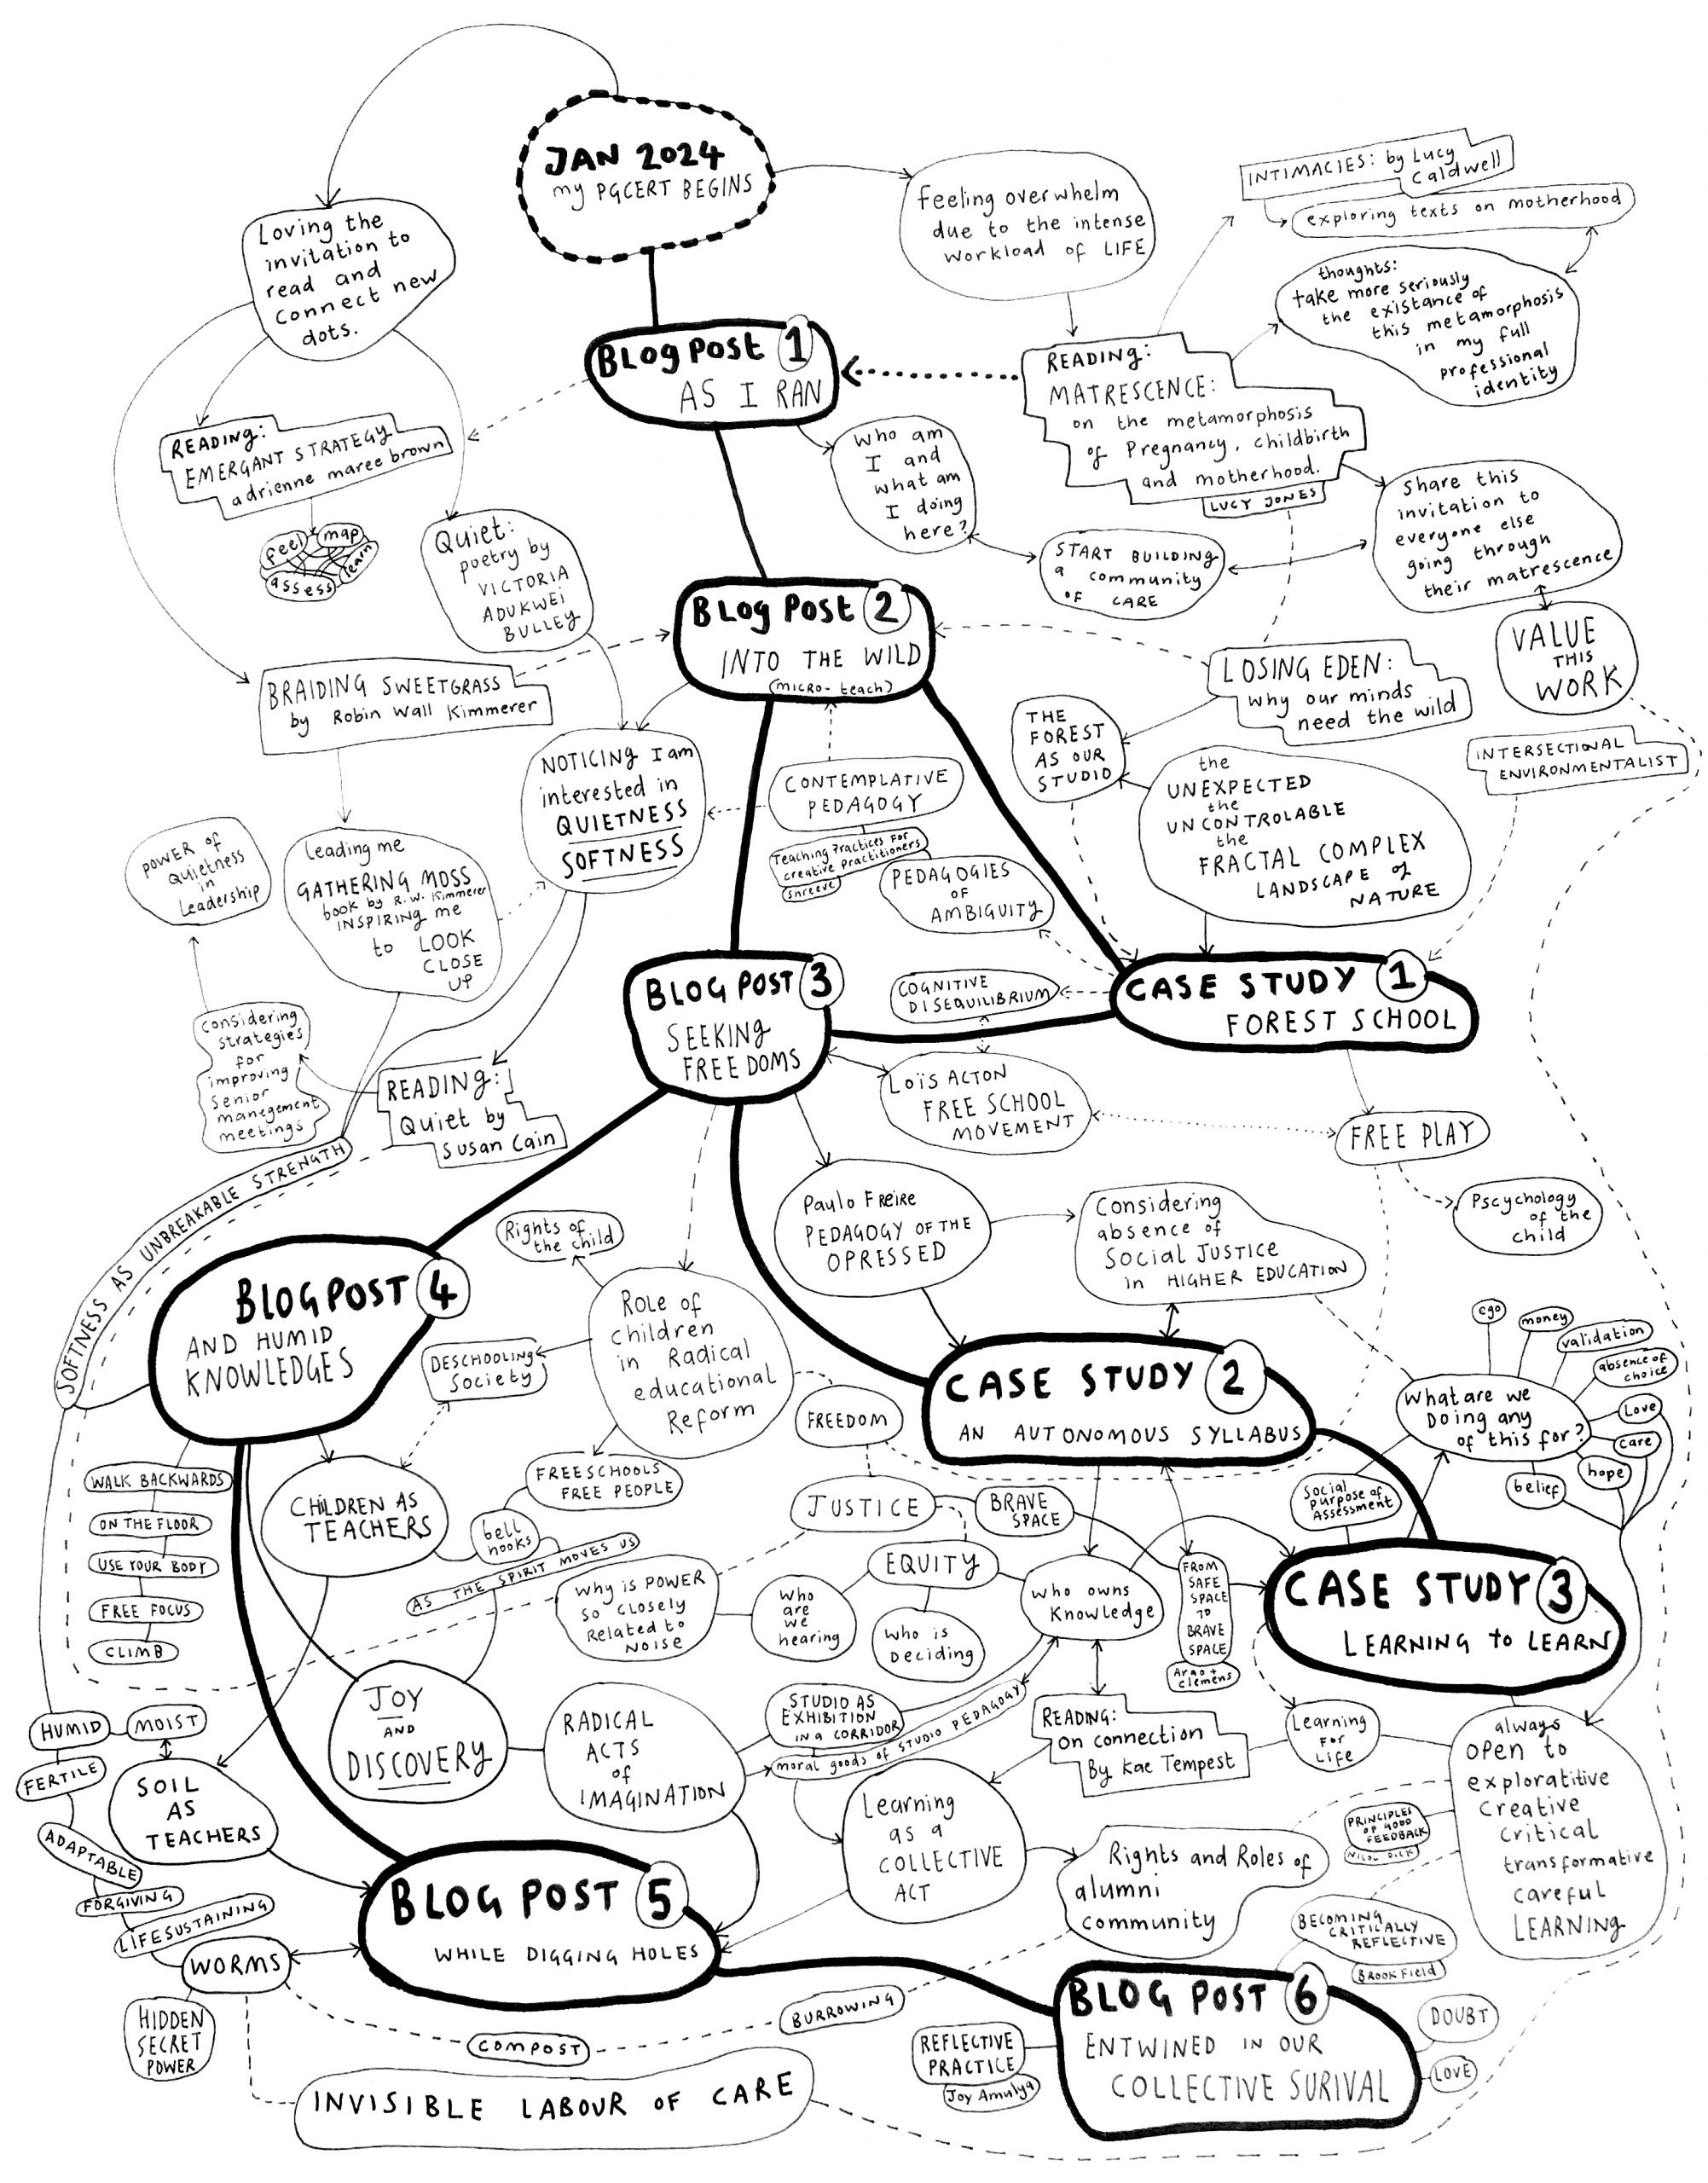 JAN 2024
my PGCERT BEGINS
Loving the
invitation to
read and
connect new
dots.
Feeling overwhelm
due to the intense
workload of LIFE
INTIMACIES: by Lucy
Caldwell
exploring texts on motherhood
thoughts:
take more seriously
the existance of
this metamorphosis
in my full
professional
identity
BLOG POST 1
AS I RAN
READING:
MATRESCENCE:
on the metamorphosis
of Pregnancy, childbirth
and motherhood.
LUCY JONES
READING:
EMERGANT STRATEGY
adrienne maree brown
feel
map
learn
assess
Quiet:
poetry by
VICTORIA
ADUKWEI
BULLEY
Who am
I and
what am
I doing
here?
START BUILDING
a community
OF CARE
Share this
invitation to
everyone else
going through
their matrescence
VALUE
THIS
WORK
BLOG POST 2
INTO THE WILD
(micro-teach)
BRAIDING SWEETGRASS
by Robin Wall Kimmerer
LOSING EDEN:
Why our minds
need the wild
THE
FOREST
AS OUR
STUDIO
INTERSECTIONAL
ENVIRONMENTALIST
NOTICING I am
interested in
QUIETNESS
SOFTNESS
CONTEMPLATIVE
PEDAGOGY
Teaching Practices For
creative Practitioners
Shreeve
PEDAGOGIES
OF
AMBIGUITY
the
UNEXPECTED
the
UNCONTROLABLE
the
FRACTAL COMPLEX
LANDSCAPE of
NATURE
POWER OF
Quietness
in
Leadership
Leading me
GATHERING MOSS
book by R.W. Kimmerer
INSPIRING me
to LOOK
CLOSE
UP
BLOG POST 3
SEEKING
FREEDOMS
COGNITIVE
DISEQUILIBRIUM
CASE STUDY 1
FOREST SCHOOL
Considering
strategies
for
improving
senior
manegement
meetings
READING:
Quiet by
Susan Cain
LOïS ACTON
FREE SCHOOL
MOVEMENT
FREE PLAY
Pscychology
of the
child
SOFTNESS AS UNBREAKABLE STRENGTH
Paulo Freire
PEDAGOGY OF THE
OPRESSED
Considering
absence of
Social JUSTICE
in HIGHER EDUCATION
Rights of
the child
BLOG POST 4
AND HUMID
KNOWLEDGES
Role of
children
in Radical
educational
Reform
DESCHOOLING
Society
CASE STUDY 2
AN AUTONOMOUS SYLLABUS
ego
money
validation
absence of
choice
Love
care
hope
belief
What are we
Doing any
of this for?
FREEDOM
WALK BACKWARDS
ON THE FLOOR
USE YOUR BODY
FREE FOCUS
CLIMB
CHILDREN AS
TEACHERS
FREE SCHOOLS
FREE PEOPLE
bell
hooks
AS THE SPIRIT MOVES US
JUSTICE
BRAVE
SPACE
Social
purpose of
Assessment
EQUITY
Why is POWER
so closely
Related to
NOISE
Who
are
we
hearing
Who is
Deciding
Who owns
Knowledge
FROM
SAFE
SPACE
TO
BRAVE
SPACE
Arao +
Clemens
CASE STUDY 3
LEARNING to LEARN
JOY
AND
DISCOVERY
RADICAL
ACTS
of
IMAGINATION
STUDIO AS
EXHIBITION
IN A CORRIDOR
moral goods of STUDIO PEDAGOGY
READING:
On connection
By Kae Tempest
Learning
For
Life
always
open to
exploratitive
Creative
Critical
transformative
careful
LEARNING
HUMID
MOIST
FERTILE
ADAPTABLE
FORGIVING
LIFESUSTAINING
SOIL
AS
TEACHERS
WORMS
HIDDEN
SECRET
POWER
Learning
as a
COLLECTIVE
ACT
Rights and Roles of
alumni
community
PRINCIPLES
OF GOOD
FEEDBACK
BECOMING
CRITICALLY
REFLECTIVE
BROOKFIELD
BLOG POST 5
WHILE DIGGING HOLES
COMPOST
BURROWING
BLOG POST 6
ENTWINED IN OUR
COLLECTIVE SURIVAL
REFLECTIVE
PRACTICE
Joy Amulya
DOUBT
LOVE
INVISIBLE LABOUR OF CARE